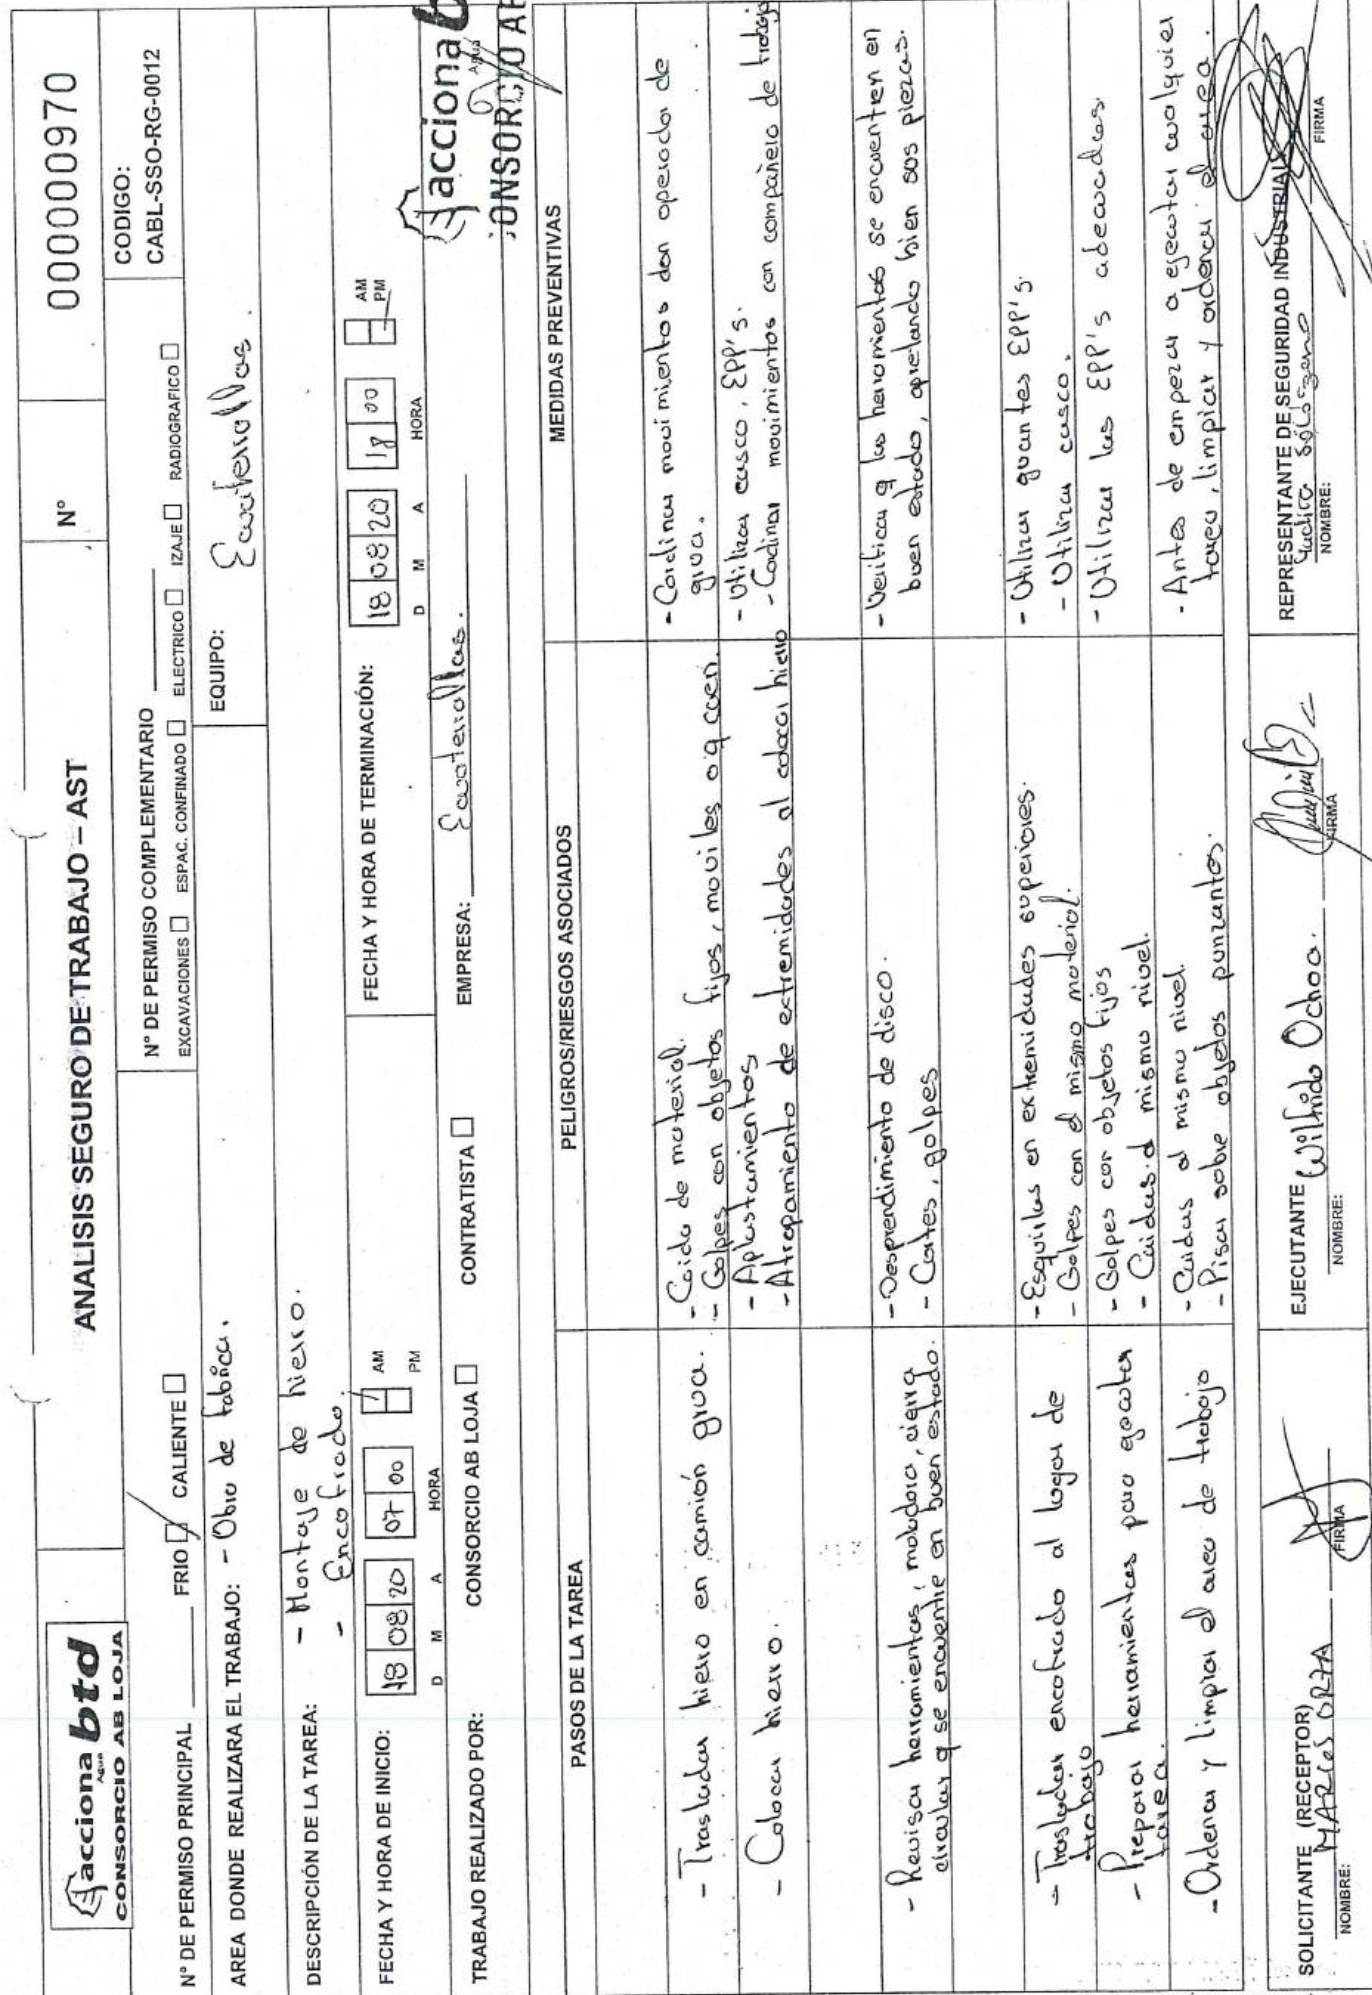 acciona btd
Agua
CONSORCIO AB LOJA
ANALISIS SEGURO DE TRABAJO – AST
N°
00000970
N° DE PERMISO PRINCIPAL
FRIO
CALIENTE
N° DE PERMISO COMPLEMENTARIO
EXCAVACIONES
ESPAC. CONFINADO
ELECTRICO
IZAJE
RADIOGRAFICO
CODIGO:
CABL-SSO-RG-0012
AREA DONDE REALIZARA EL TRABAJO: - Obra de fabrica.
EQUIPO:
DESCRIPCIÓN DE LA TAREA: - Montaje de hierro.
- Encofrado.
FECHA Y HORA DE INICIO: 18 08 20 07 00 AM
PM
D M A HORA
FECHA Y HORA DE TERMINACIÓN: 18 08 20 18 00 AM
PM
D M A HORA
TRABAJO REALIZADO POR:
CONSORCIO AB LOJA
CONTRATISTA
EMPRESA:
acciona b
Agua
ONSORCIO AB
PASOS DE LA TAREA
PELIGROS/RIESGOS ASOCIADOS
MEDIDAS PREVENTIVAS
- Trasladar hierro en camión grua.
- Caida de material.
- Golpes con objetos fijos, moviles o q caen.
- Cordinar movimientos don operador de
grua.
- Colocar hierro.
- Aplastamientos
- Atrapamiento de extremidades al colocar hierro
- Utilizar casco, EPP's.
- Codinar movimientos con compañero de trabajo
- Revisar herramientas, moladora, cierra
circular q se encuentre en buen estado.
- Desprendimiento de disco.
- Cortes, golpes
- Verificar q las herramientas se encuentren en
buen estado, apretando bien sus piezas.
- Trasladar encofrado al lugar de
trabajo
- Esquirlas en extremidades superiores.
- Golpes con el mismo material.
- Utilizar guantes EPP's.
- Utilizar casco.
- Preparar herramientas para ejecutar
tarea.
- Golpes con objetos fijos
- Caidas al mismo nivel.
- Utilizar las EPP's adecuadas.
- Ordenar y limpiar el area de trabajo
- Caidas al mismo nivel.
- Pisar sobre objetos punzantes.
- Antes de empezar a ejecutar cualquier
tarea, limpiar y ordenar el area.
SOLICITANTE (RECEPTOR)
NOMBRE:
FIRMA
EJECUTANTE
Wilfrido Ochoa.
NOMBRE:
FIRMA
REPRESENTANTE DE SEGURIDAD INDUSTRIAL
NOMBRE:
FIRMA